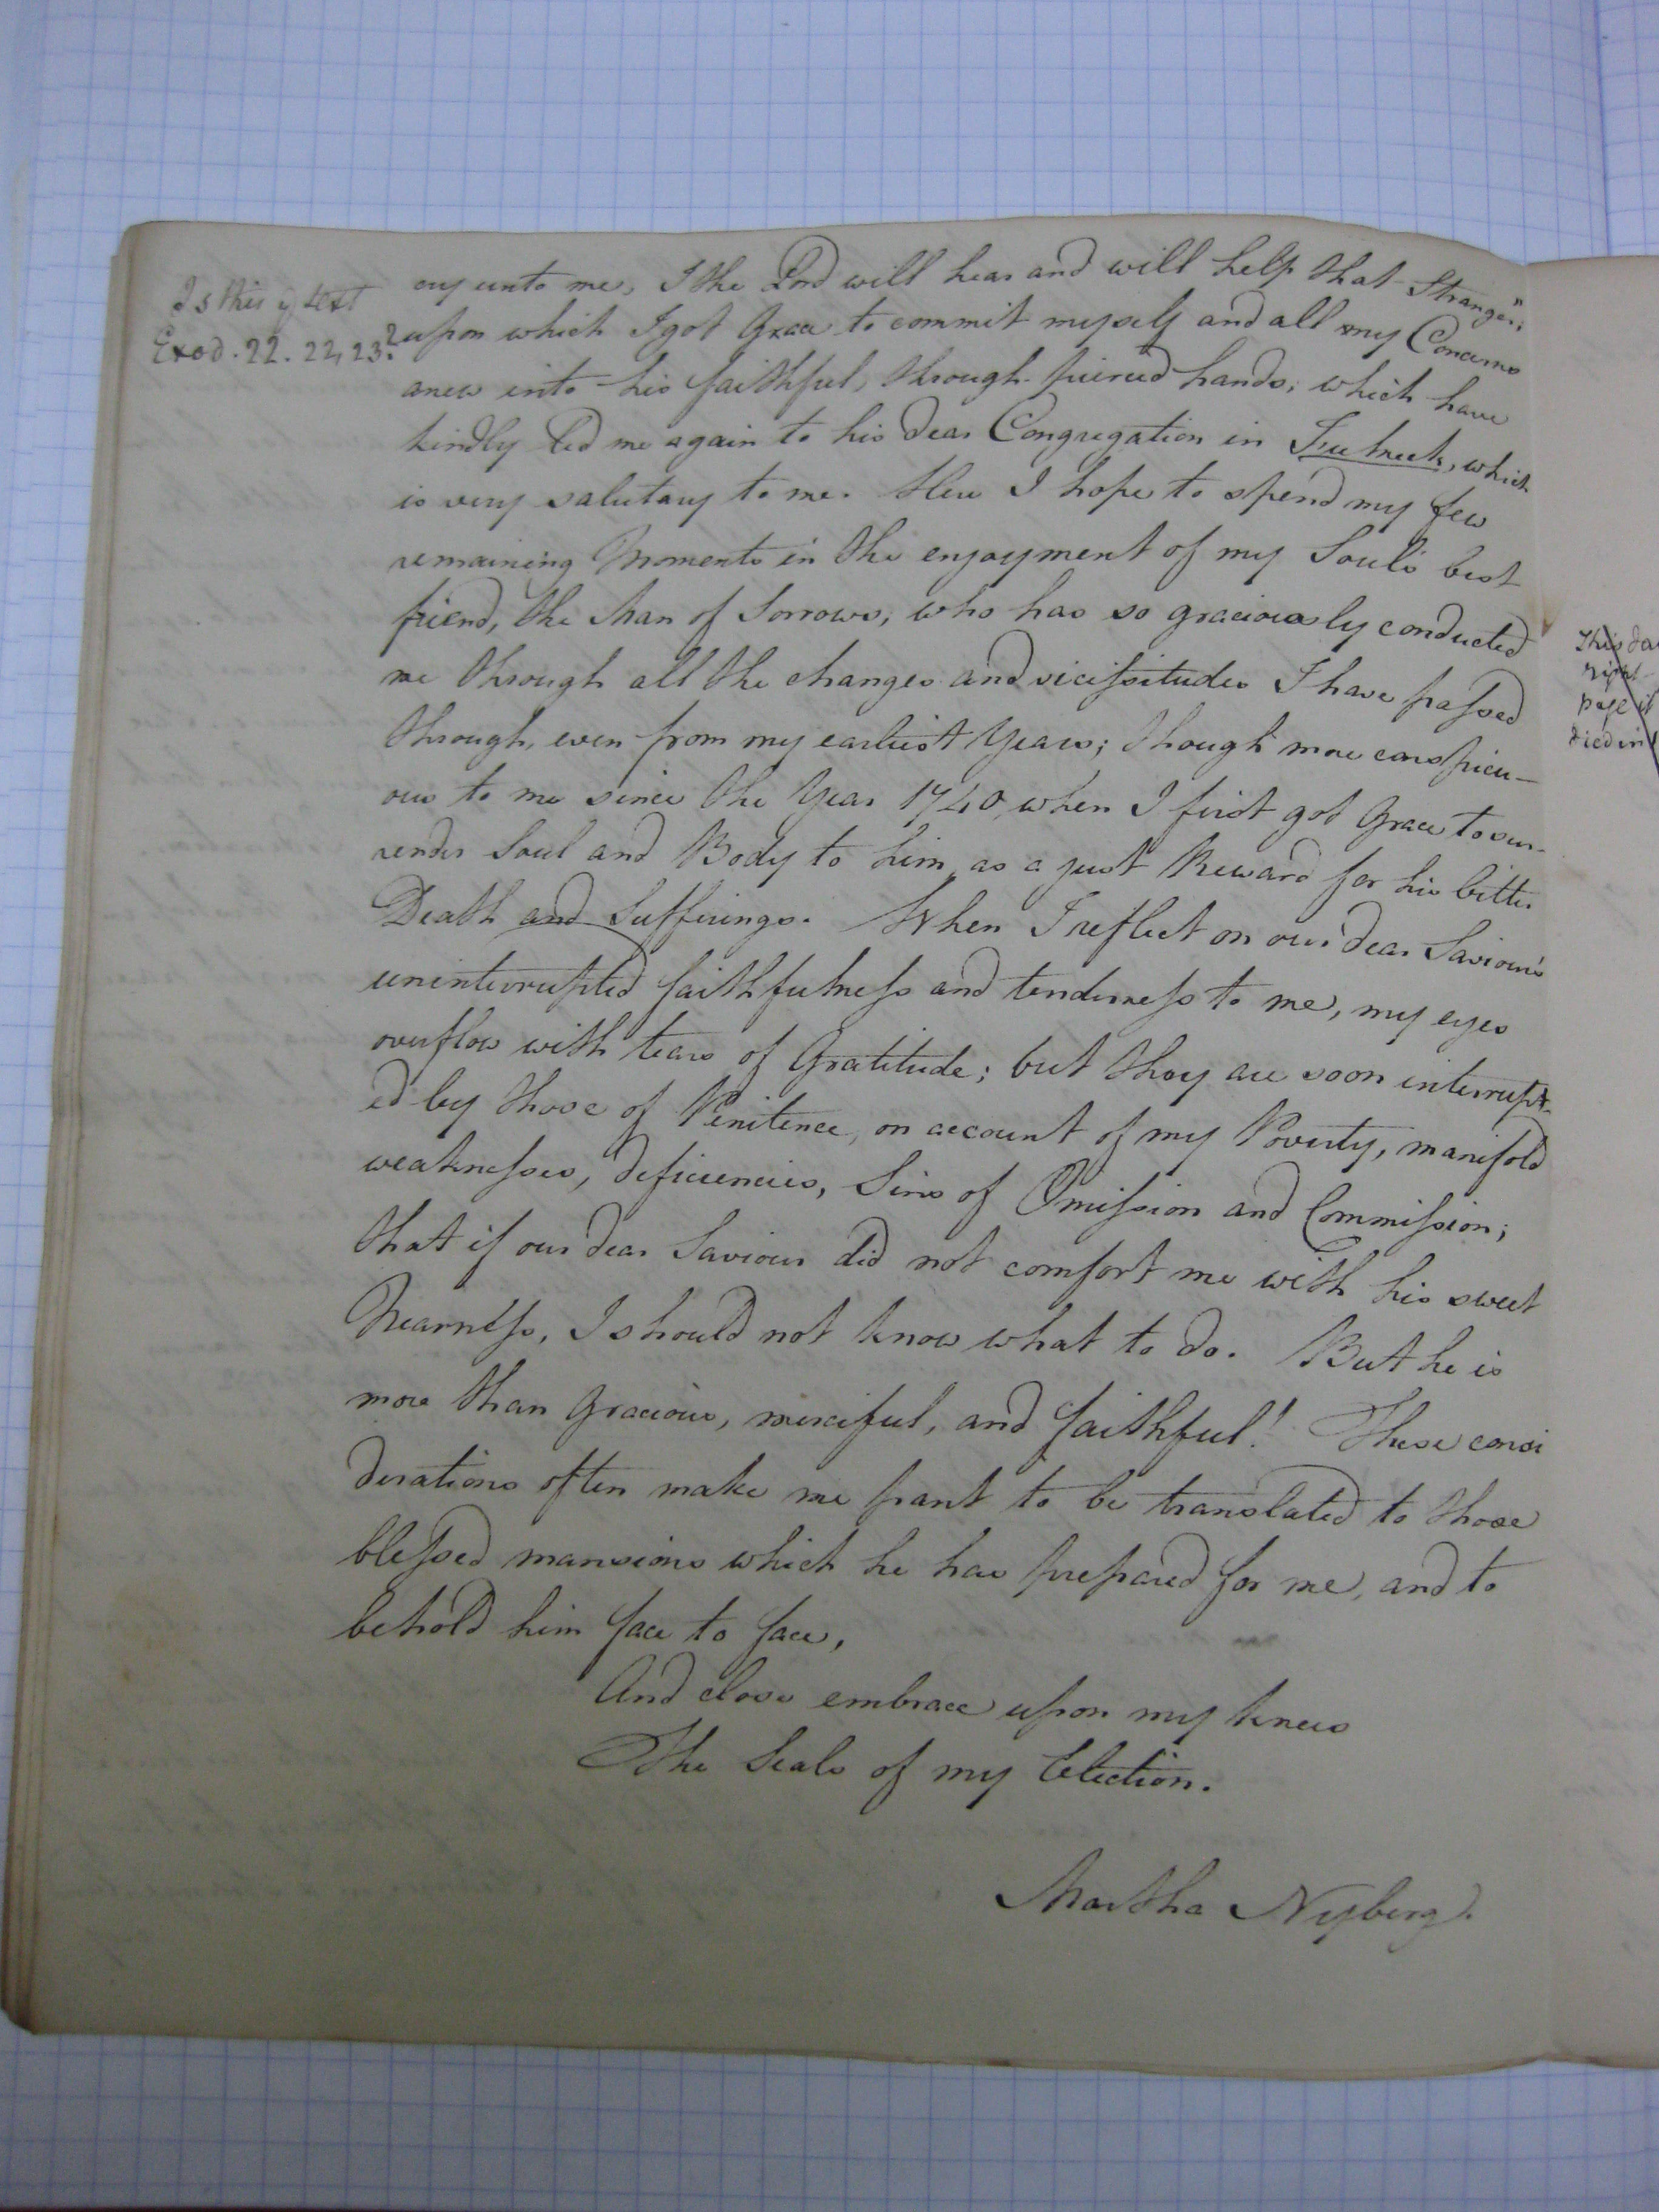 Is this ye text
Exod. 22. 22, 23?
cry unto me, I the Lord will hear and will help that Stranger,"
upon which I got Grace to commit myself and all my Concerns
anew into his faithful, through-pierced hands; which have
kindly led me again to his dear Congregation in Fulneck, which
is very salutary to me. Here I hope to spend my few
remaining Moments in the enjoyment of my Soul's best
friend, the Man of Sorrows, who has so graciously conducted
me through all the changes and vicissitudes I have passed
through, even from my earliest Years; though more conspicu-
ous to me since the Year 1740, when I first got Grace to sur-
render Soul and Body to him, as a just Reward for his bitter
Death and Sufferings. When I reflect on our dear Saviour's
uninterrupted faithfulness and tenderness to me, my eyes
overflow with tears of Gratitude; but they are soon interrupt-
ed by those of Penitence, on account of my Poverty, manifold
weaknesses, deficiencies, Sins of Omission and Commission;
that if our dear Saviour did not comfort me with his sweet
Nearness, I should not know what to do. But he is
more than Gracious, merciful, and faithful! These consi
derations often make me pant to be translated to those
blessed mansions which he has prepared for me, and to
behold him face to face,
And close embrace upon my knees
The Seals of my Election.
Martha Nyberg.
This
right
page
died in